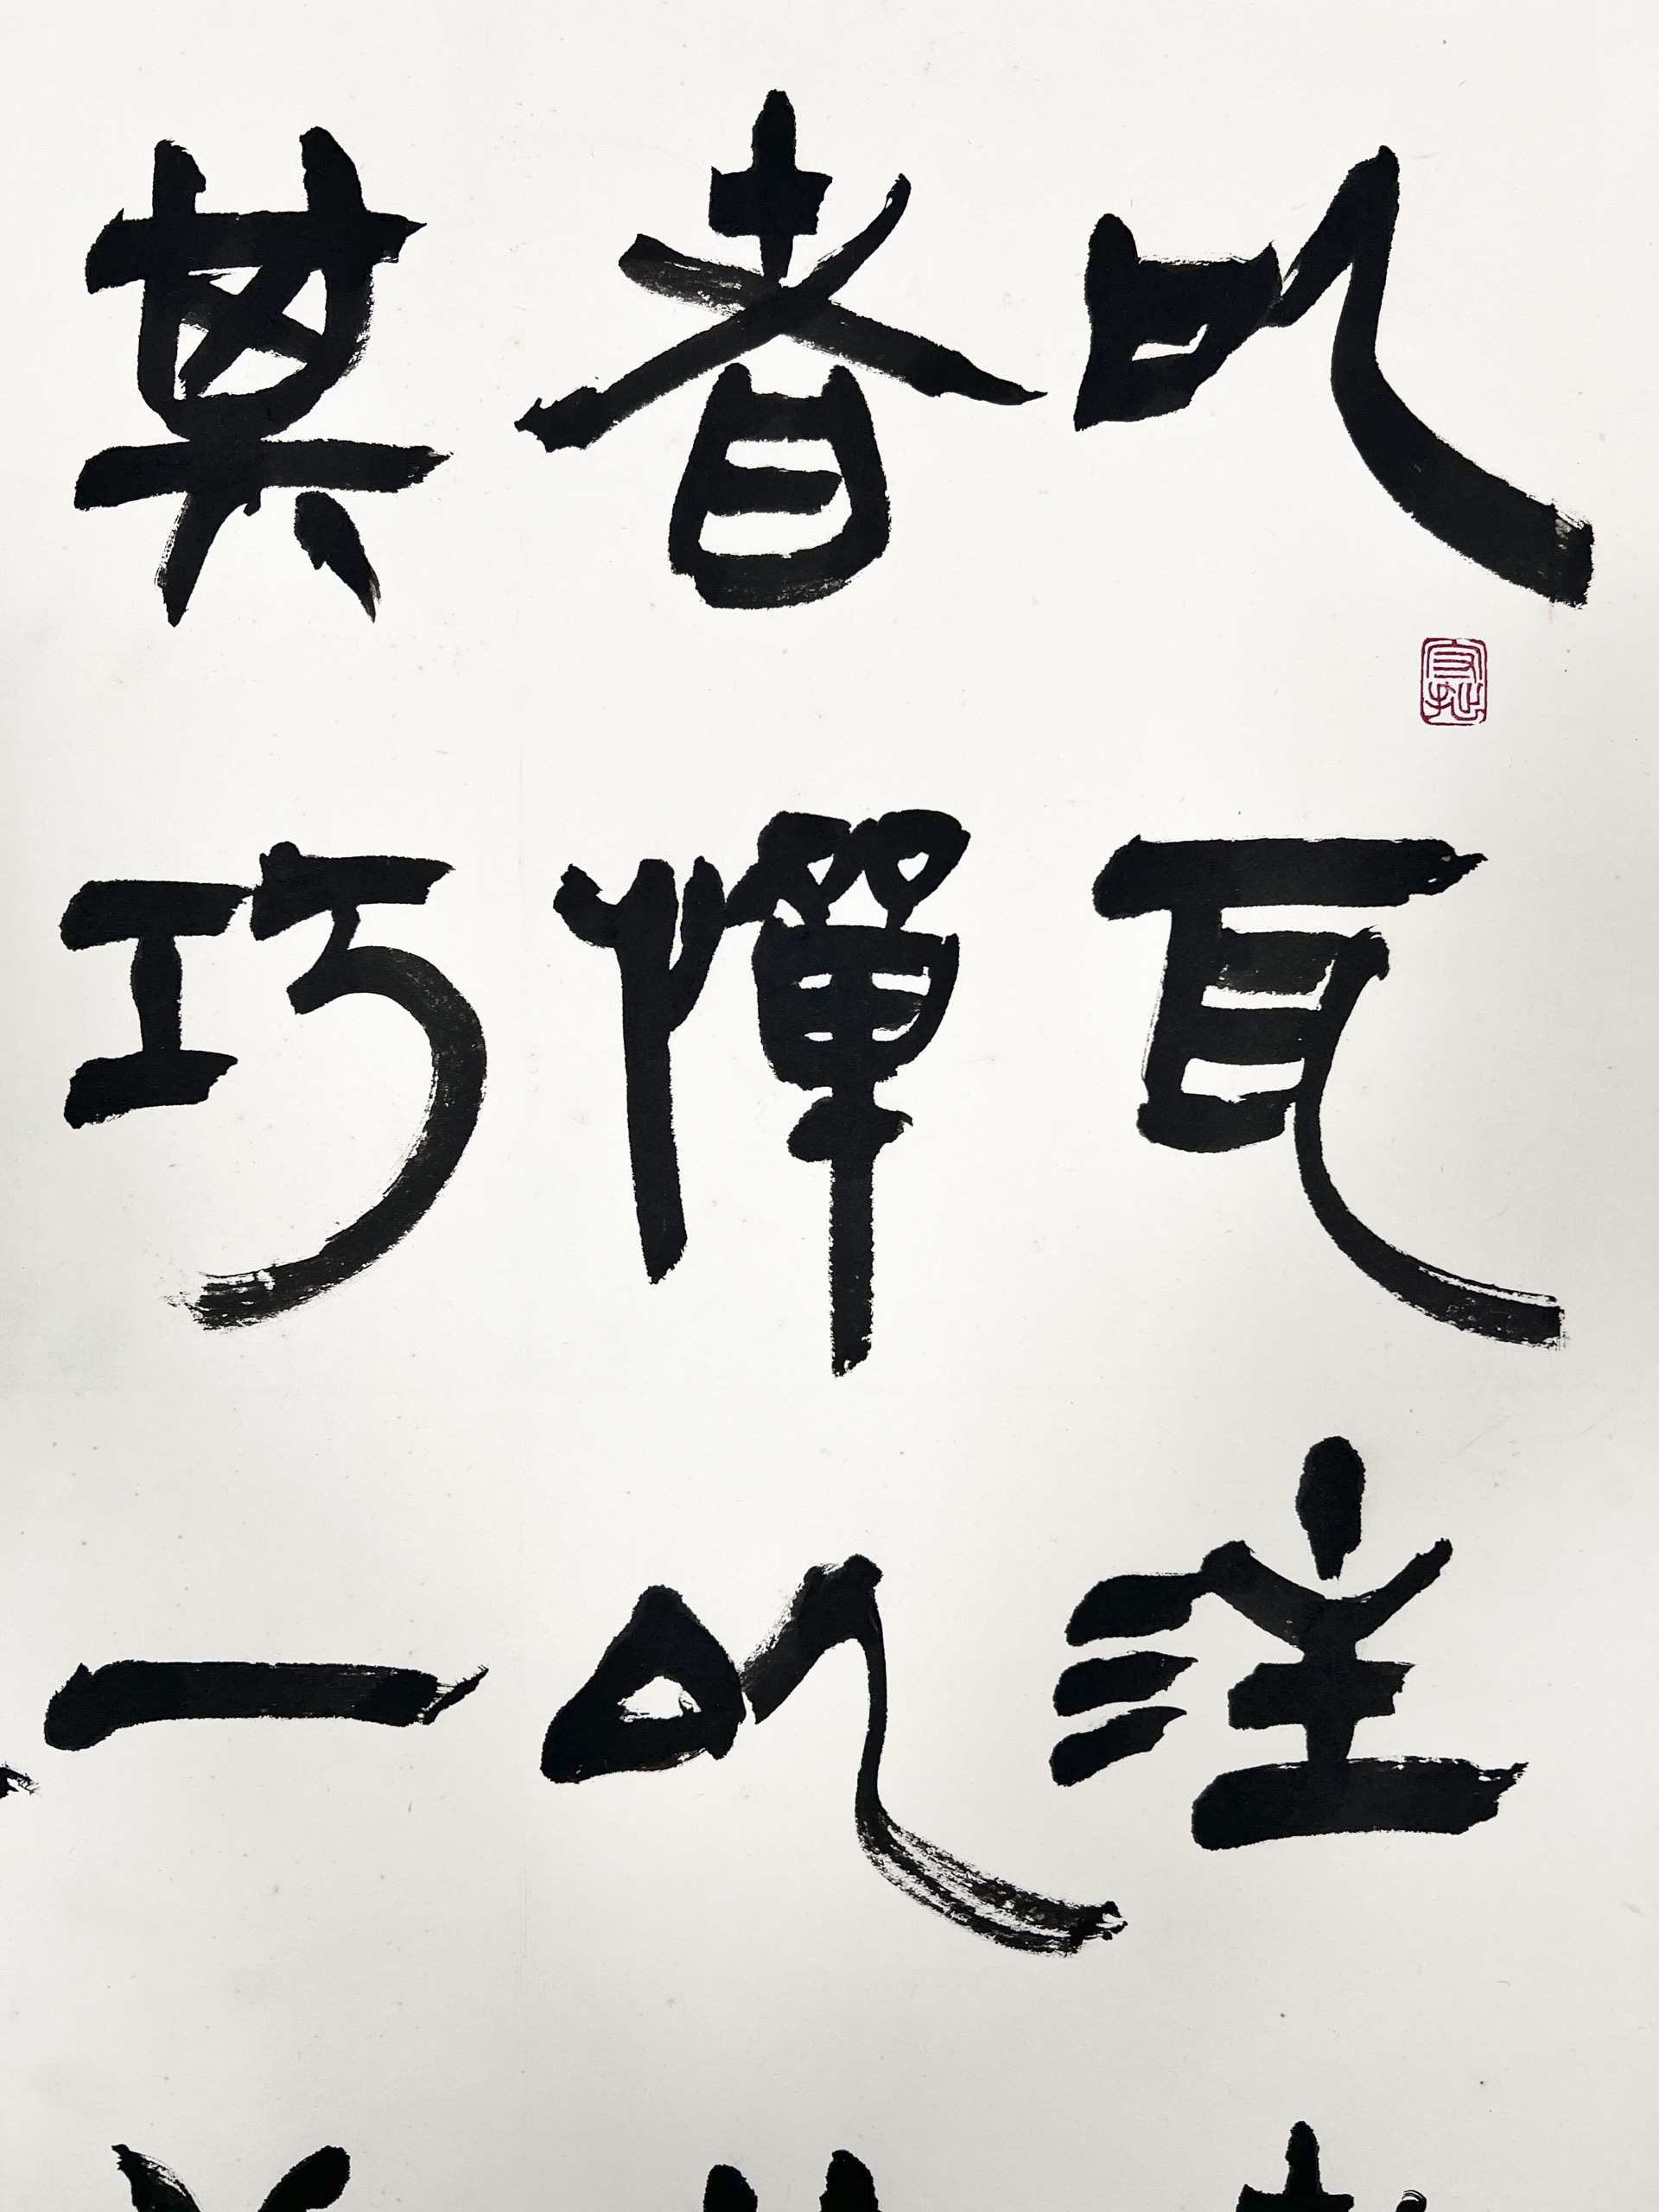 以瓦注
者憚以
其巧一